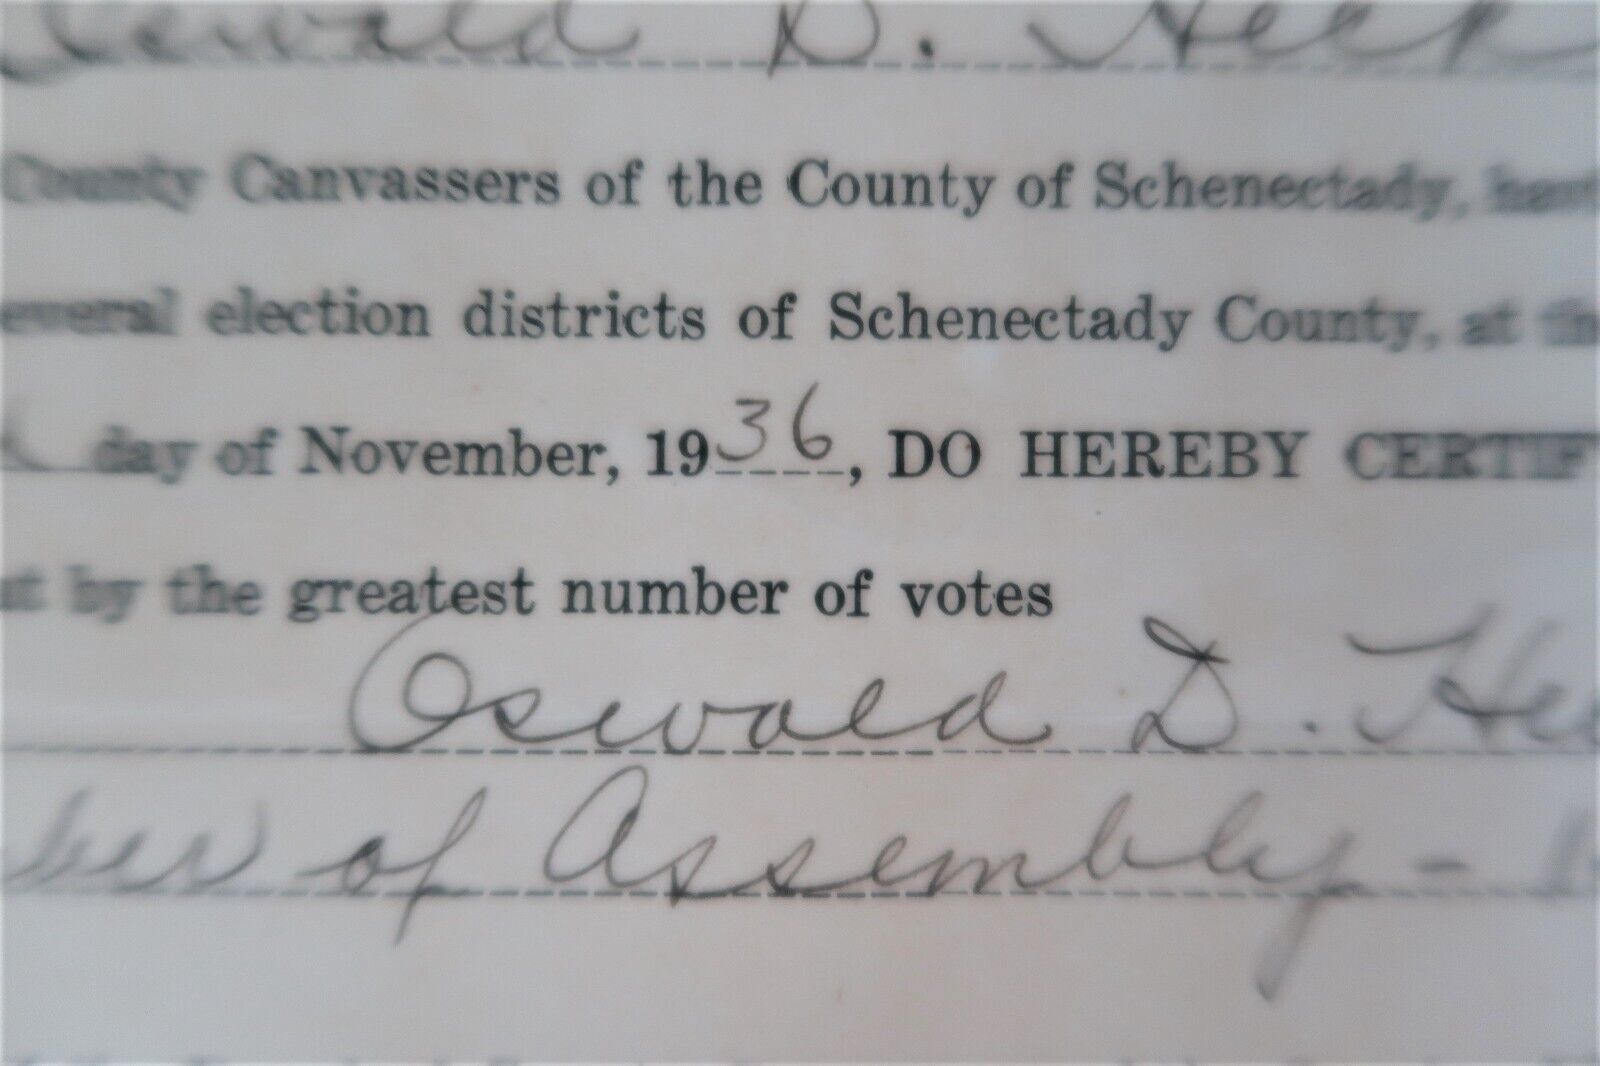 Oswald D. Heck
County Canvassers of the County of Schenectady, have
everal election districts of Schenectady County, at th
day of November, 1936, DO HEREBY CERTIF
t by the greatest number of votes
Oswald D. Hec
ber of Assembly -